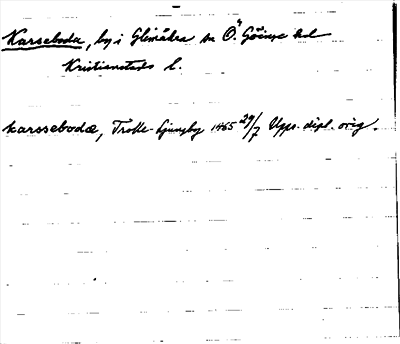 Karseboda, by i Glimåkra sn Ö. Göinge hd
Kristianstads l.
karssebodæ, Trolle-Ljungby 1465 29/7 Upps. dipl. orig.